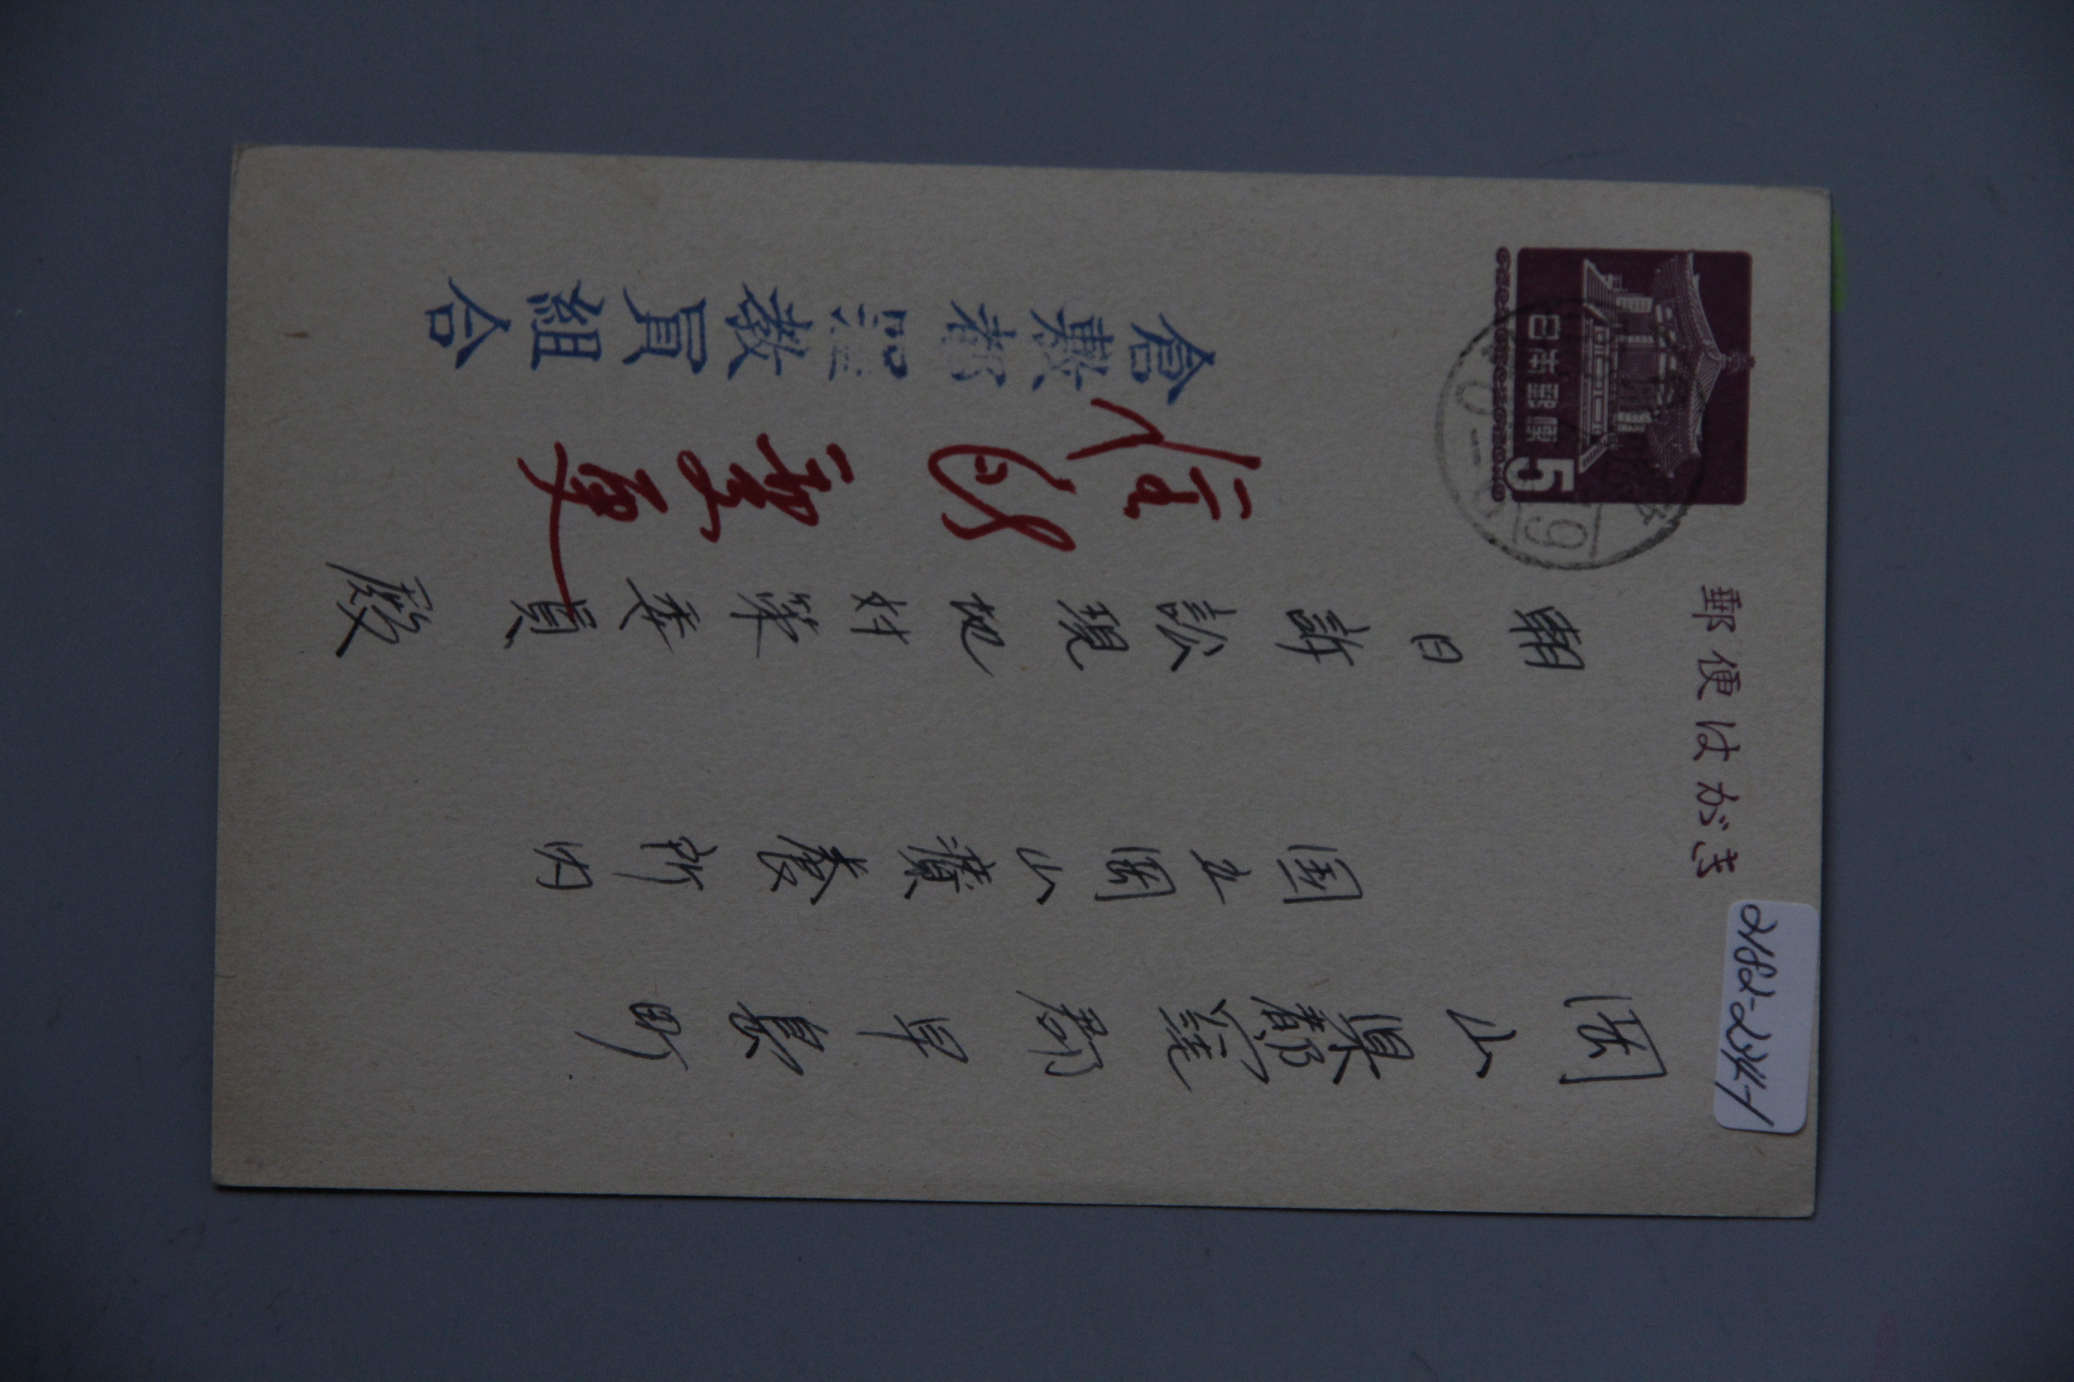 郵便はがき
日本郵便
5
2182-234-1
岡山県都窪郡早島町
国立岡山療養所内
朝日訴訟現地対策委員
殿
重要
倉敷都窪教員組合